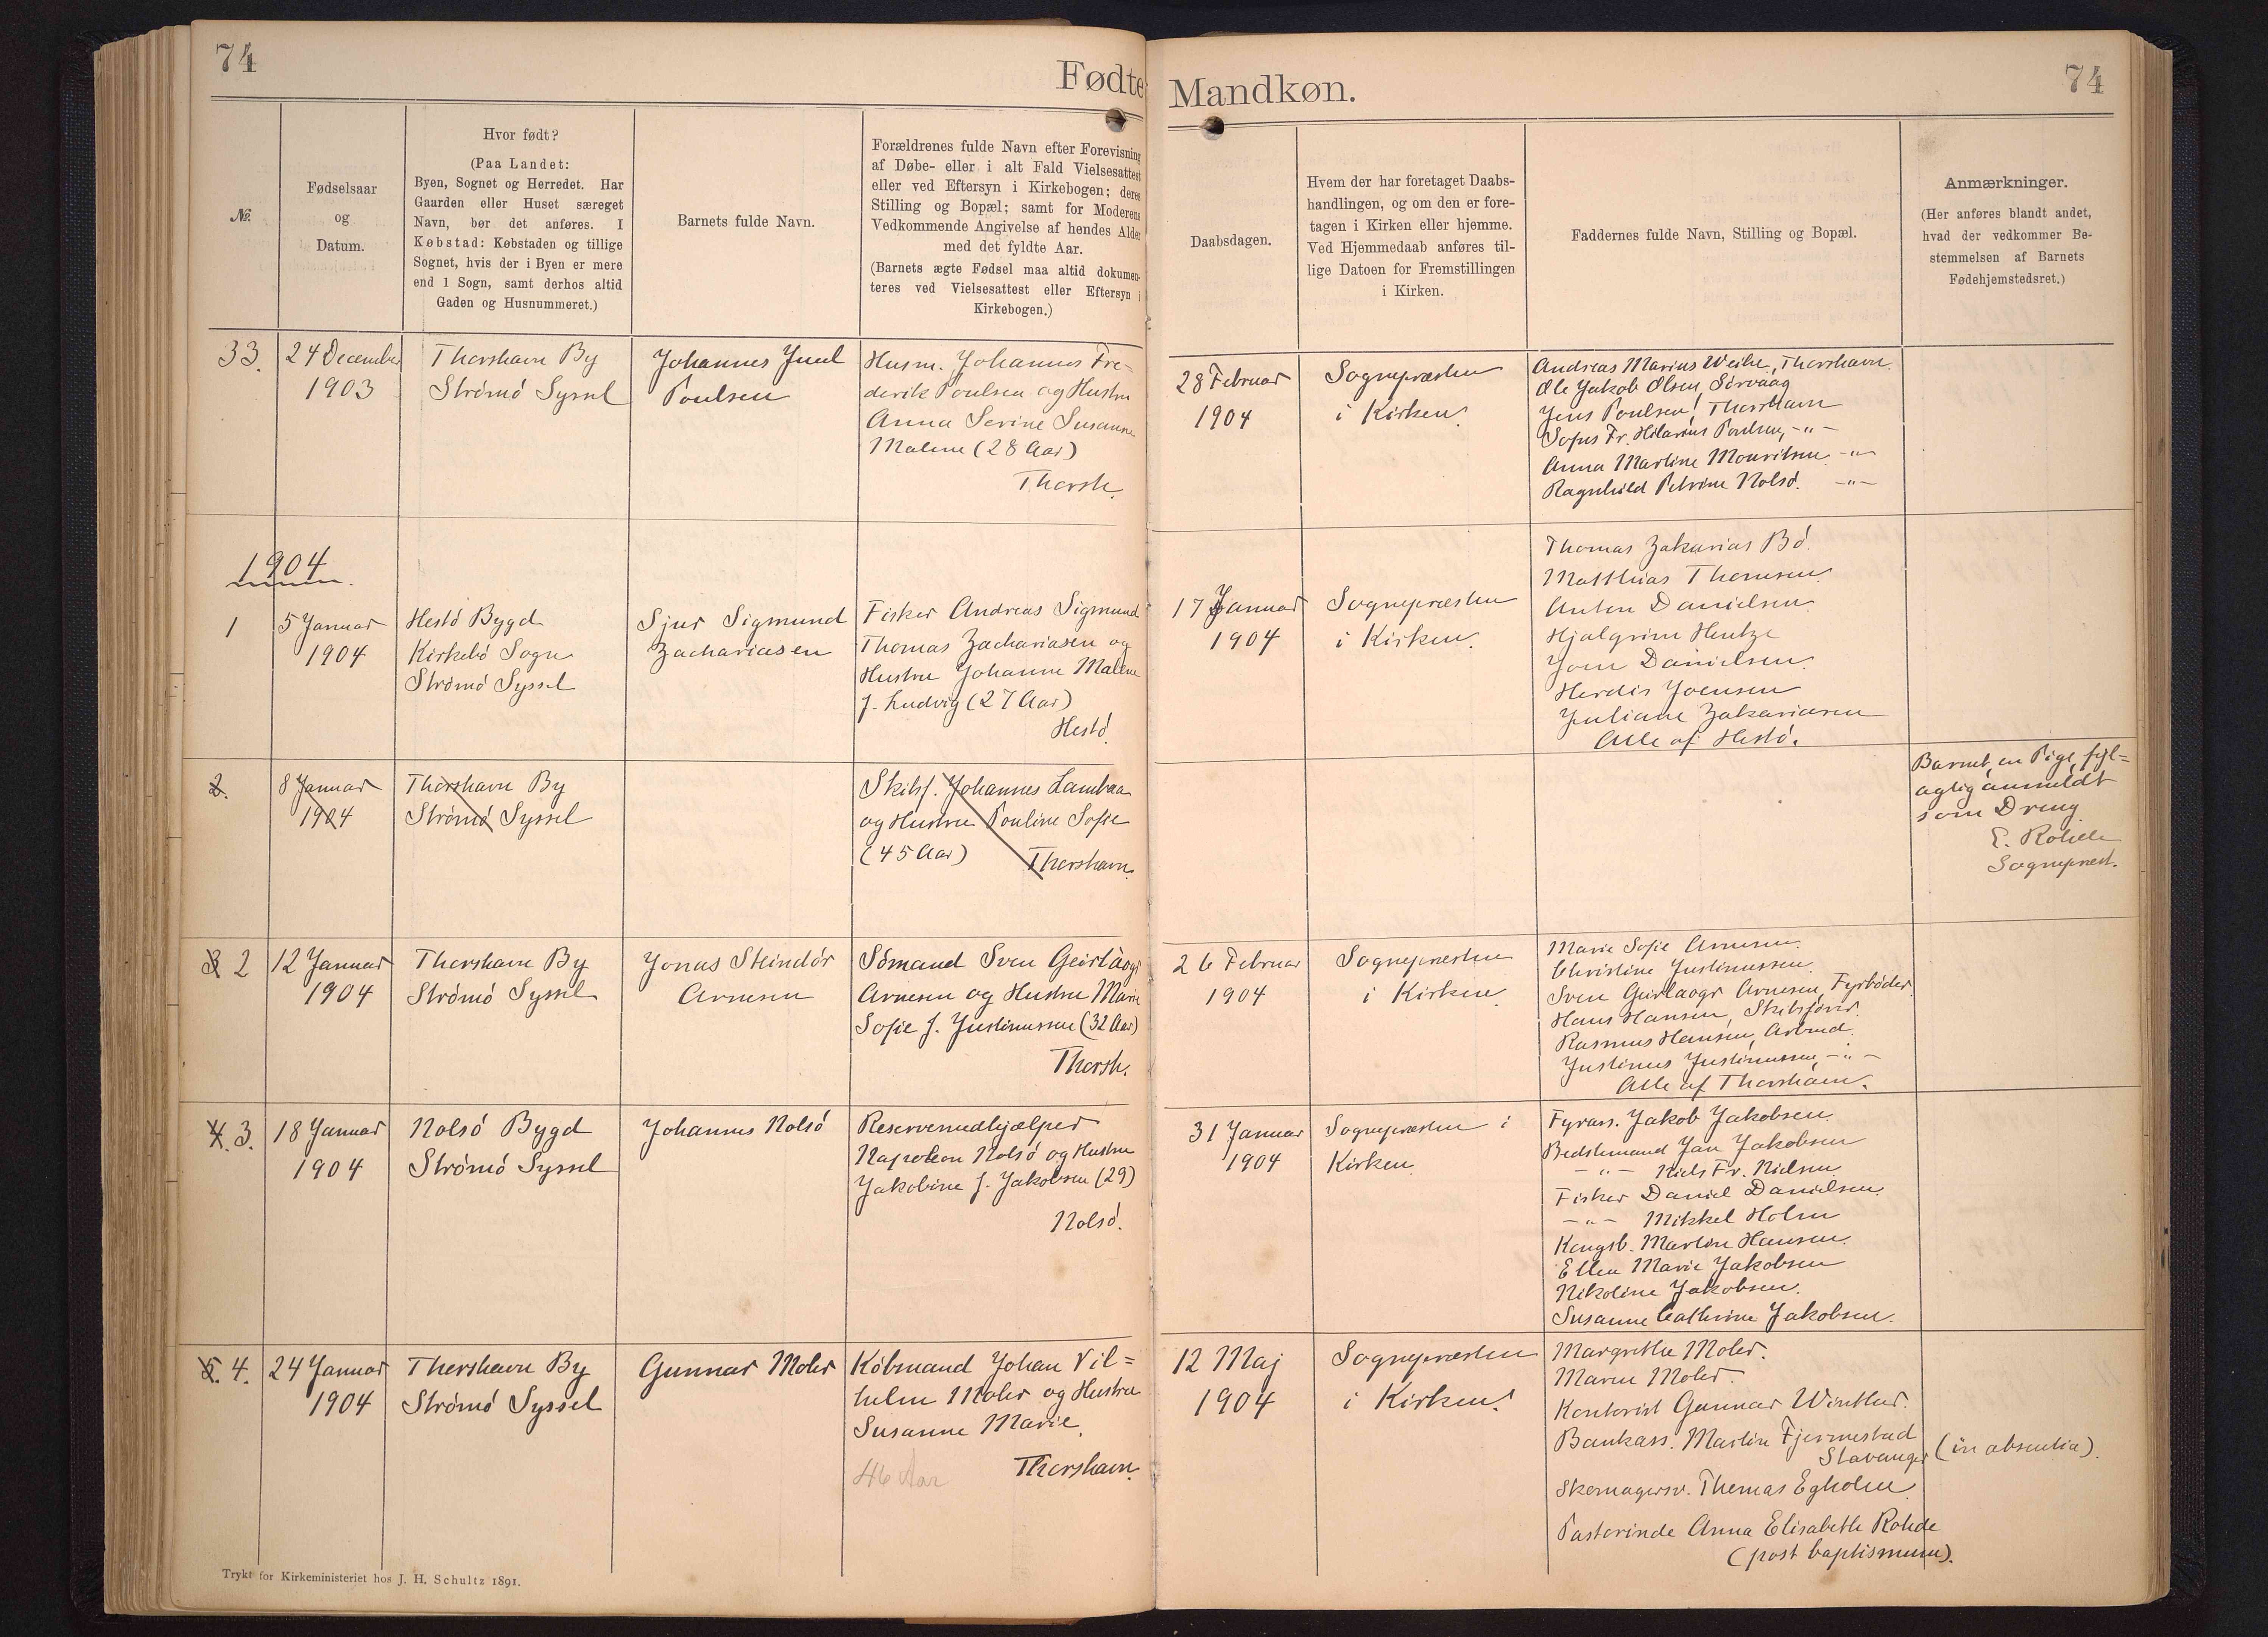 74
Fødte
Mandkøn.
74
№.
Fødselsaar
og
Datum.
Hvor født?
(Paa Landet:
Byen, Sognet og Herredet. Har
Gaarden eller Huset særeget
Navn, bør det anføres. I
Købstad: Købstaden og tillige
Sognet, hvis der i Byen er mere
end 1 Sogn, samt derhos altid
Gaden og Husnummeret.)
Barnets fulde Navn.
Forældrenes fulde Navn efter Forevisning
af Døbe- eller i alt Fald Vielsesattest
eller ved Eftersyn i Kirkebogen; deres
Stilling og Bopæl; samt for Moderens
Vedkommende Angivelse af hendes Alder
med det fyldte Aar.
(Barnets ægte Fødsel maa altid dokumen-
teres ved Vielsesattest eller Eftersyn i
Kirkebogen.)
Daabsdagen.
Hvem der har foretaget Daabs-
handlingen, og om den er fore-
tagen i Kirken eller hjemme.
Ved Hjemmedaab anføres til-
lige Datoen for Fremstillingen
i Kirken.
Faddernes fulde Navn, Stilling og Bopæl.
Anmærkninger.
(Her anføres blandt andet,
hvad der vedkommer Be-
stemmelsen af Barnets
Fødehjemstedsret.)
33.
24 December
1903
Thorshavn By
Strømø Syssel
Johannes Juul
Poulsen
Husm. Johannes Fre-
derik Poulsen og Hustru
Anna Serine Susanne
Malene (28 Aar)
Thorsh.
28 Februar
1904
Sognepræsten
i Kirken.
Andreas Marius Weihe, Thorshavn
Ole Jakob Olsen, Sørvaag
Jens Poulsen, Thorshavn
Sofus Fr. Hilarius Poulsen, -"-
Anna Martine Mouritsen -"-
Ragnhild Petrine Nolsø. -"-
1904
1
5 Januar
1904
Hestø Bygd
Kirkebø Sogn
Strømø Syssel
Sjur Sigmund
Zachariasen
Fisker Andreas Sigmund
Thomas Zachariasen og
Hustru Johanne Malene
f. Ludvig (27 Aar)
Hestø
17 Januar
1904
Sognepræsten
i Kirken.
Thomas Zakarias Bø.
Matthias Thomsen
Anton Danielsen
Hjalgrim Hentze
Joen Danielsen
Herdis Joensen
Juliane Zakariasen
Alle af Hestø.
2.
8 Januar
1904
Thorshavn By
Strømø Syssel
Skibsf. Johannes Lambaa
og Hustru Pouline Sofie
(45 Aar)
Thorshavn
Barnet, en Pige, fejl=
agtig anmeldt
som Dreng.
E. Rohde
Sognepræst.
3 2
12 Januar
1904
Thorshavn By
Strømø Syssel
Jonas Steindór
Arnesen
Sømand Sven Geirlaogr
Arnesen og Hustru Marie
Sofie f. Justinussen (32 Aar)
Thorsh.
26 Februar
1904
Sognepræsten
i Kirken
Marie Sofie Arnesen
Christine Justinussen
Sven Geirlaogr Arnesen, Fyrbøder
Hans Hansen, Skibsfører
Rasmus Hansen, Arbmd.
Justinus Justinussen -"-
Alle af Thorshavn.
4. 3.
18 Januar
1904
Nolsø Bygd
Strømø Syssel
Johannes Nolsø
Reservemedhjælper
Napoleon Nolsø og Hustru
Jakobine f. Jakobsen (29)
Nolsø.
31 Januar
1904
Sognepræsten i
Kirken
Fyrass. Jakob Jakobsen
Bedstemand Jan Jakobsen
-"- Niels Fr. Nielsen
Fisker Daniel Danielsen
-"- Mikkel Holm
Kongsb. Martin Hansen
Ellen Marie Jakobsen
Nikoline Jakobsen.
Susanne Cathrine Jakobsen.
5. 4.
24 Januar
1904
Thorshavn By
Strømø Syssel
Gunnar Mohr
Købmand Johan Vil=
helm Mohr og Hustru
Susanne Marie
46 Aar
Thorshavn
12 Maj
1904
Sognepræsten
i Kirken.
Margrethe Mohr.
Maren Mohr.
Kontorist Gunnar Winther.
Bankass. Martin Fjermestad
Stavanger (in absentia).
Skomagersv. Thomas Egholm
Pastorinde Anna Elisabeth Rohde
(post baptismum).
Trykt for Kirkeministeriet hos J. H. Schultz 1891.